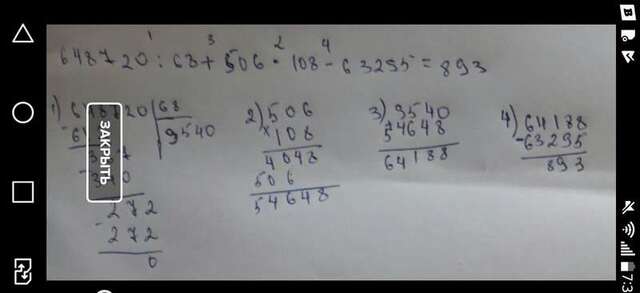 1 3 2 4
648720 : 68 + 506 · 108 - 63295 = 893
1) 648720 68 2) 506 3) 9540 4) 64188
9540 × 108 54648 - 63295
4048 64188 893
- 340 506
272 54648
- 272
0
ЗАКРЫТЬ
7:3